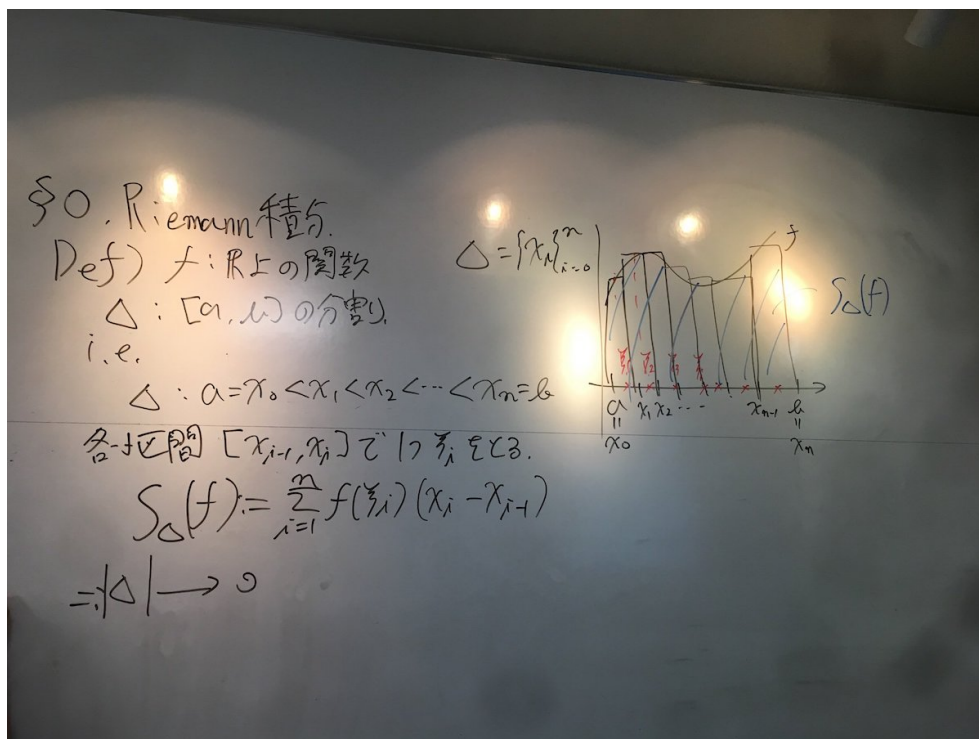 §0. Riemann積分.
Def) f:ℝ上の関数
Δ:[a,b]の分割.
i.e.
Δ:a=x₀<x₁<x₂<⋯<xₙ=b
各小区間 [xᵢ₋₁,xᵢ]で1つξᵢをとる.
S_Δ(f):=∑_{i=1}^{n} f(ξᵢ)(xᵢ-xᵢ₋₁)
=:|Δ|→0
Δ={xᵢ}_{i=0}^{n}
f
S_Δ(f)
ξ₁ ξ₂
a x₁ x₂ ⋯ xₙ₋₁ b
= =
x₀ xₙ